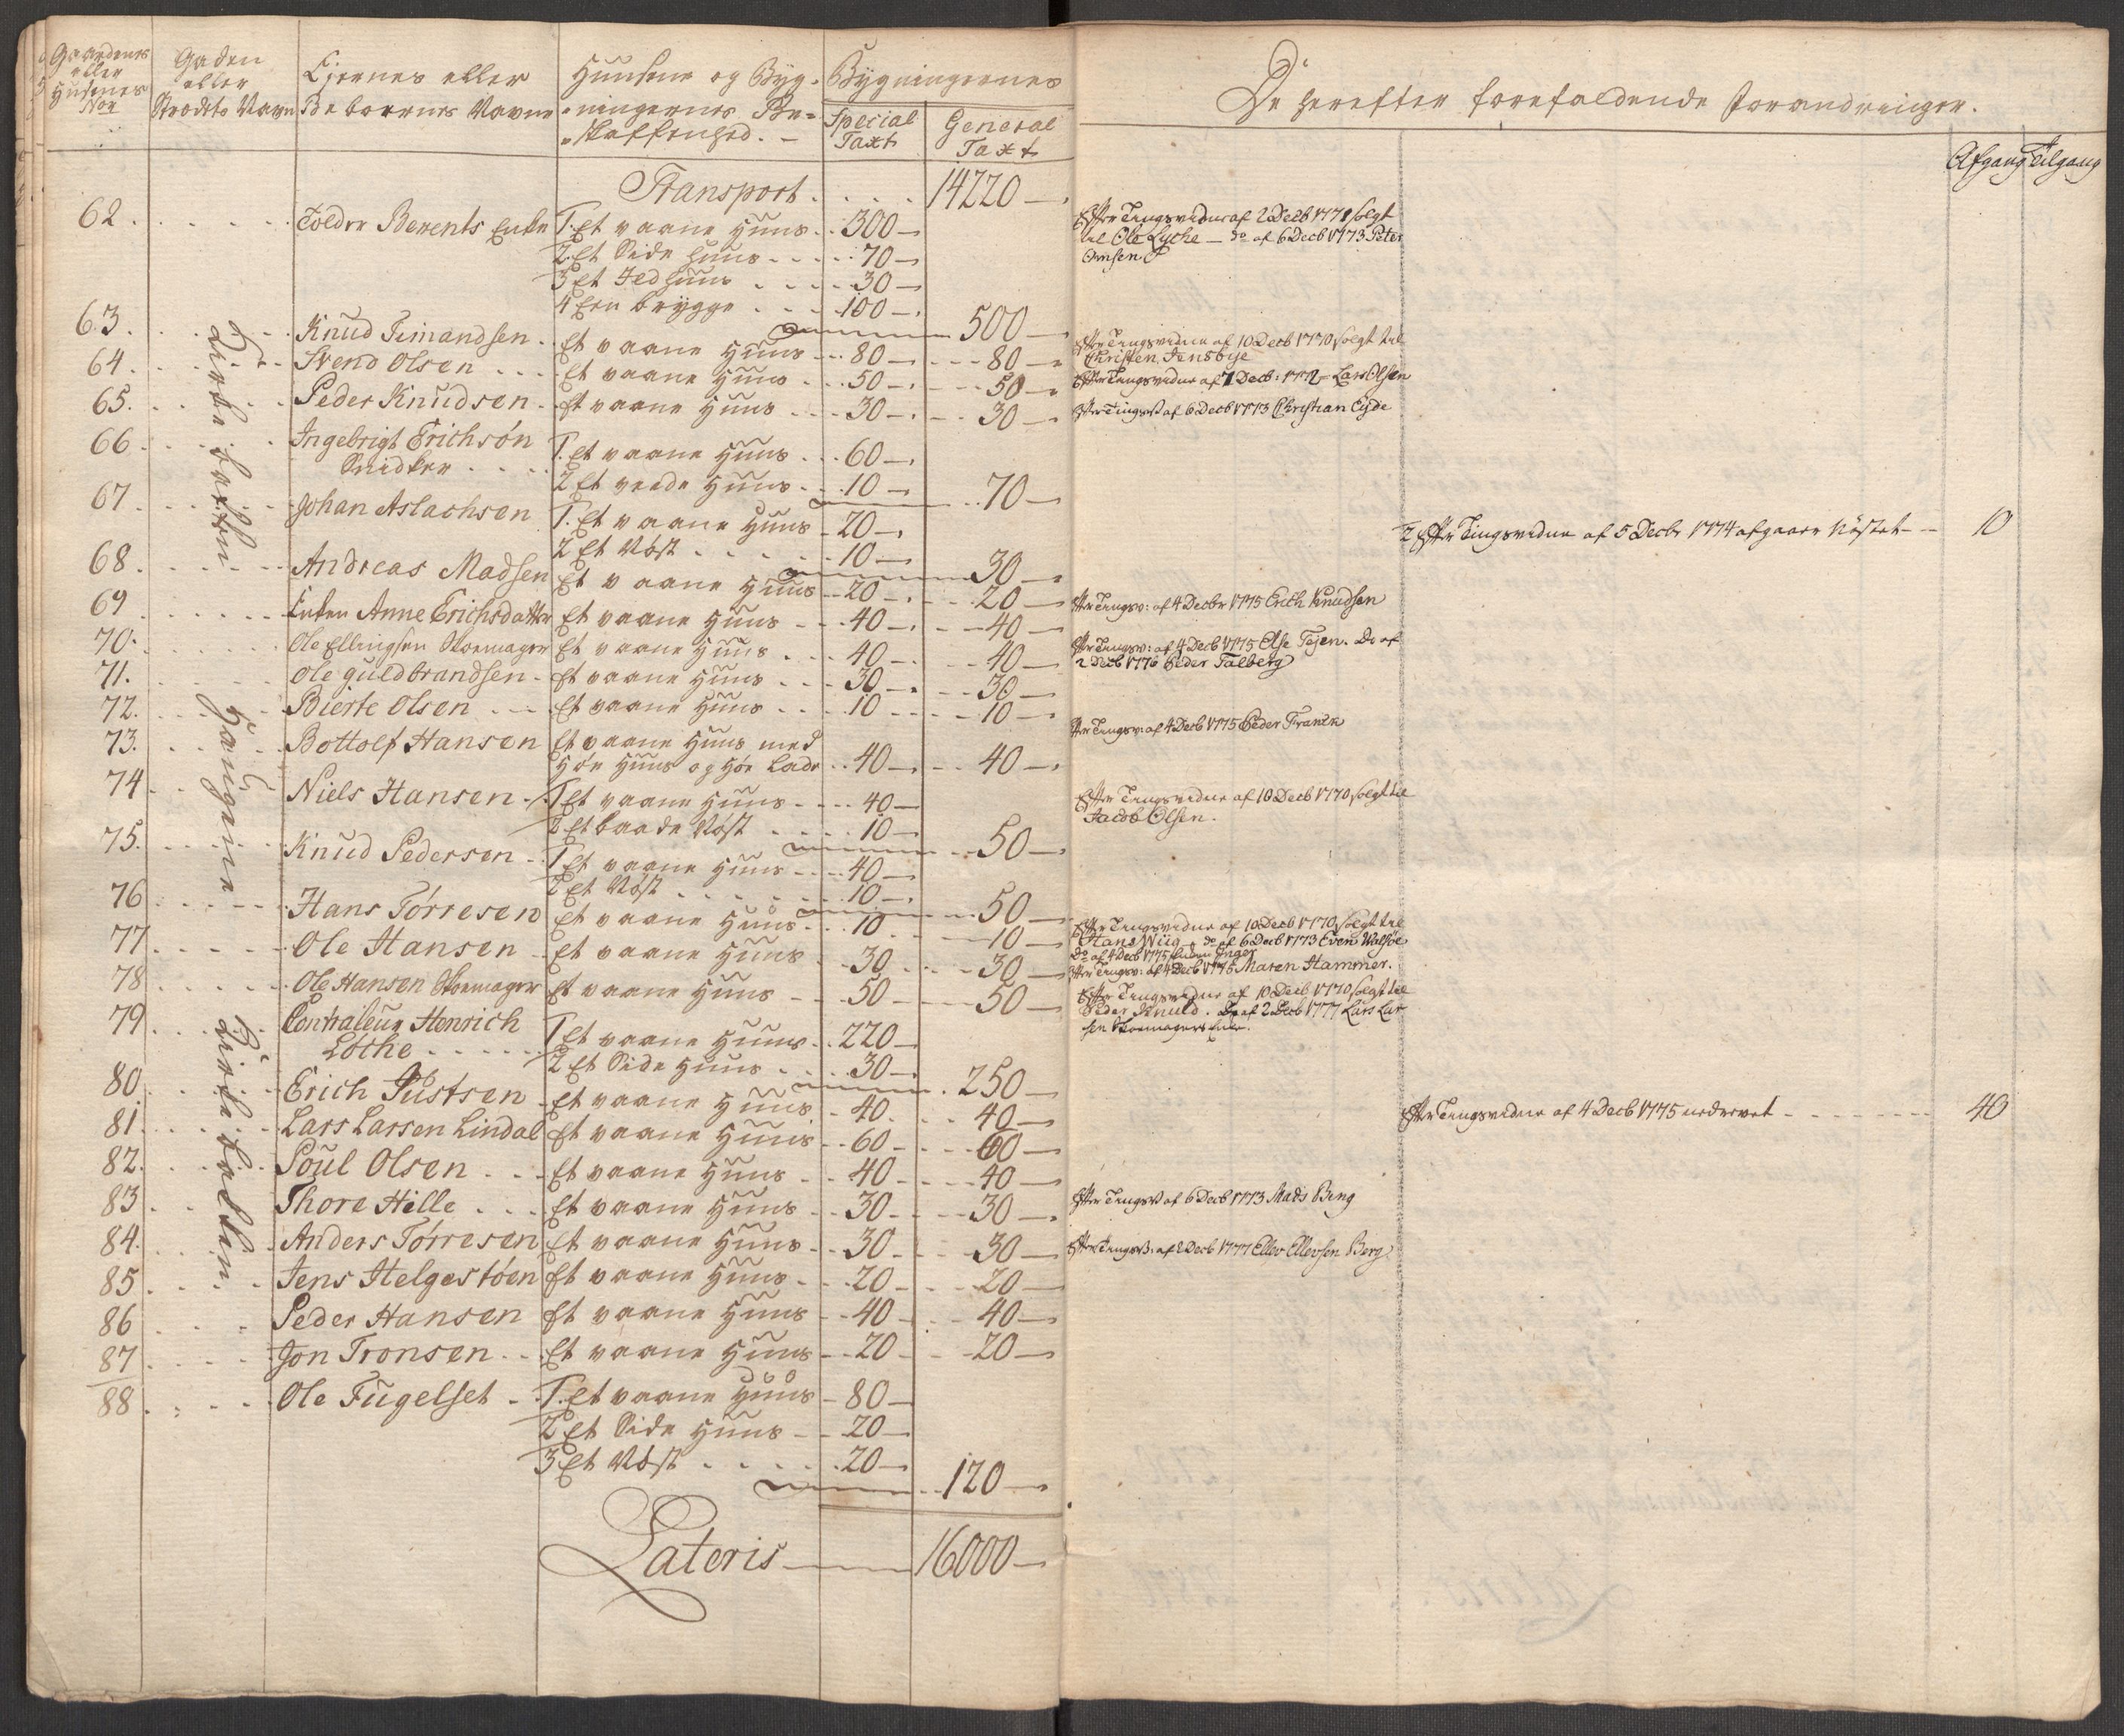 Gaardenes eller Husenes Nor | Gaden eller Strædets Navn | Ejernes eller Beboernes Navne | Huusene og Byg-ningernes Be-skaffenhed. | Bygningernes Special Taxt | General Taxt
Transport . . . . 14220
62. Tolder Berents Enke 1. Et vaane Huus 300
2. Et Side huus 70
3 Et Ildhuus 30
4 Een brygge 100 500
63. Knud Timandsen Et vaane Huus 80 80
64. Svend Olsen Et vaane Huus 50 50
65. Peder Knudsen Et vaane Huus 30 30
66. Ingebrigt Erichsøn
Snidker 1. Et vaane Huus 60
2 Et vede Huus 10 70
67. Johan Aslachsen 1. Et vaane Huus 20
2 Et Nøst 10 30
68. Andreas Madsen Et vaane Huus 20 20
69. Enken Anne Erichsdatter Et vaane Huus 40 40
70. Ole Ellingsen Skoemager Et vaane Huus 40 40
71. Ole Guldbrandsen Et vaane Huus 30 30
72. Bierte Olsen Et vaane Huus 10 10
73. Bottolf Hansen Et vaane Huus med
Høe Huus og Høe Lade 40 40
74. Niels Hansen 1 Et vaane Huus 40
2 Et baade Nøst 10 50
75. Knud Pedersen 1 Et vaane Huus 40
2 Et Nøst 10 50
76. Hans Tørresen Et vaane Huus 10 10
77. Ole Hansen Et vaane Huus 30 30
78. Ole Hansen Skoemager Et vaane Huus 50 50
79. Contraleur Henrich
Lothe 1 Et vaane Huus 220
2 Et Side Huus 30 250
80. Erich Justsen Et vaane Huus 40 40
81. Lars Larsen Lindal Et vaane Huus 60 60
82. Poul Olsen Et vaane Huus 40 40
83. Thore Hille Et vaane Huus 30 30
84. Anders Tørresen Et vaane Huus 30 30
85. Jens Helgestøen Et vaane Huus 20 20
86. Peder Hansen Et vaane Huus 40 40
87. Jon Tronsen Et vaane Huus 20 20
88. Ole Fugelset 1. Et vaane Huus 80
2 Et Side Huus 20
3 Et Nøst 20 120
Lateris 16000
Kirke bakken
Haugene
Kirke bakken
De herefter forefaldende Forandringer.
Afgang Tilgang
Efter Tingsvidne af 2 Decb 1771 solgt
til Ole Lythe - do af 6 Decb 1773 Peter
Efter Tingsvidne af 10 Decb 1770 solgt til
Christen Jensbye
Efter Tingsvidne af 7 Decb: 1772 Lars Olsen
Efter Tingsv af 6 Decb 1773 Christian Eyde
2 Efter Tingsvidne af 5 Decbr 1774 afgaaer Nøstet 10
Efter Tingsv: af 4 Decbr 1775 Erich Knudsen
Efter Tingsv: af 4 Decb 1775 Else Tejen. Do af
2 Decb 1776 Peder Talberg
Efter Tingsv: af 4 Decb 1775 Peder Franck
Efter Tingsvidne af 10 Decb 1770 solgt til
Jacob Olsen.
Efter Tingsvidne af 10 Decb 1770 solgt til
Hans Wiig. do af 6 Decb 1773 Even Walsøe
Do af 4 Decb 1775 Enken Inger
Efter Tingsv: af 4 Decb 1775 Maren Hammer.
Efter Tingsvidne af 10 Decb 1770 solgt til
Peder Knuld. Do af 2 Decb 1777 Lars Lar
sen Skoemagers Enke.
Efter Tingsvidne af 4 Decb 1775 nedrevet 40
Efter Tingsv af 6 Decb 1773 Mads Bing
Efter Tingsv. af 2 Decb 1777 Ellev Ellevsen Berg